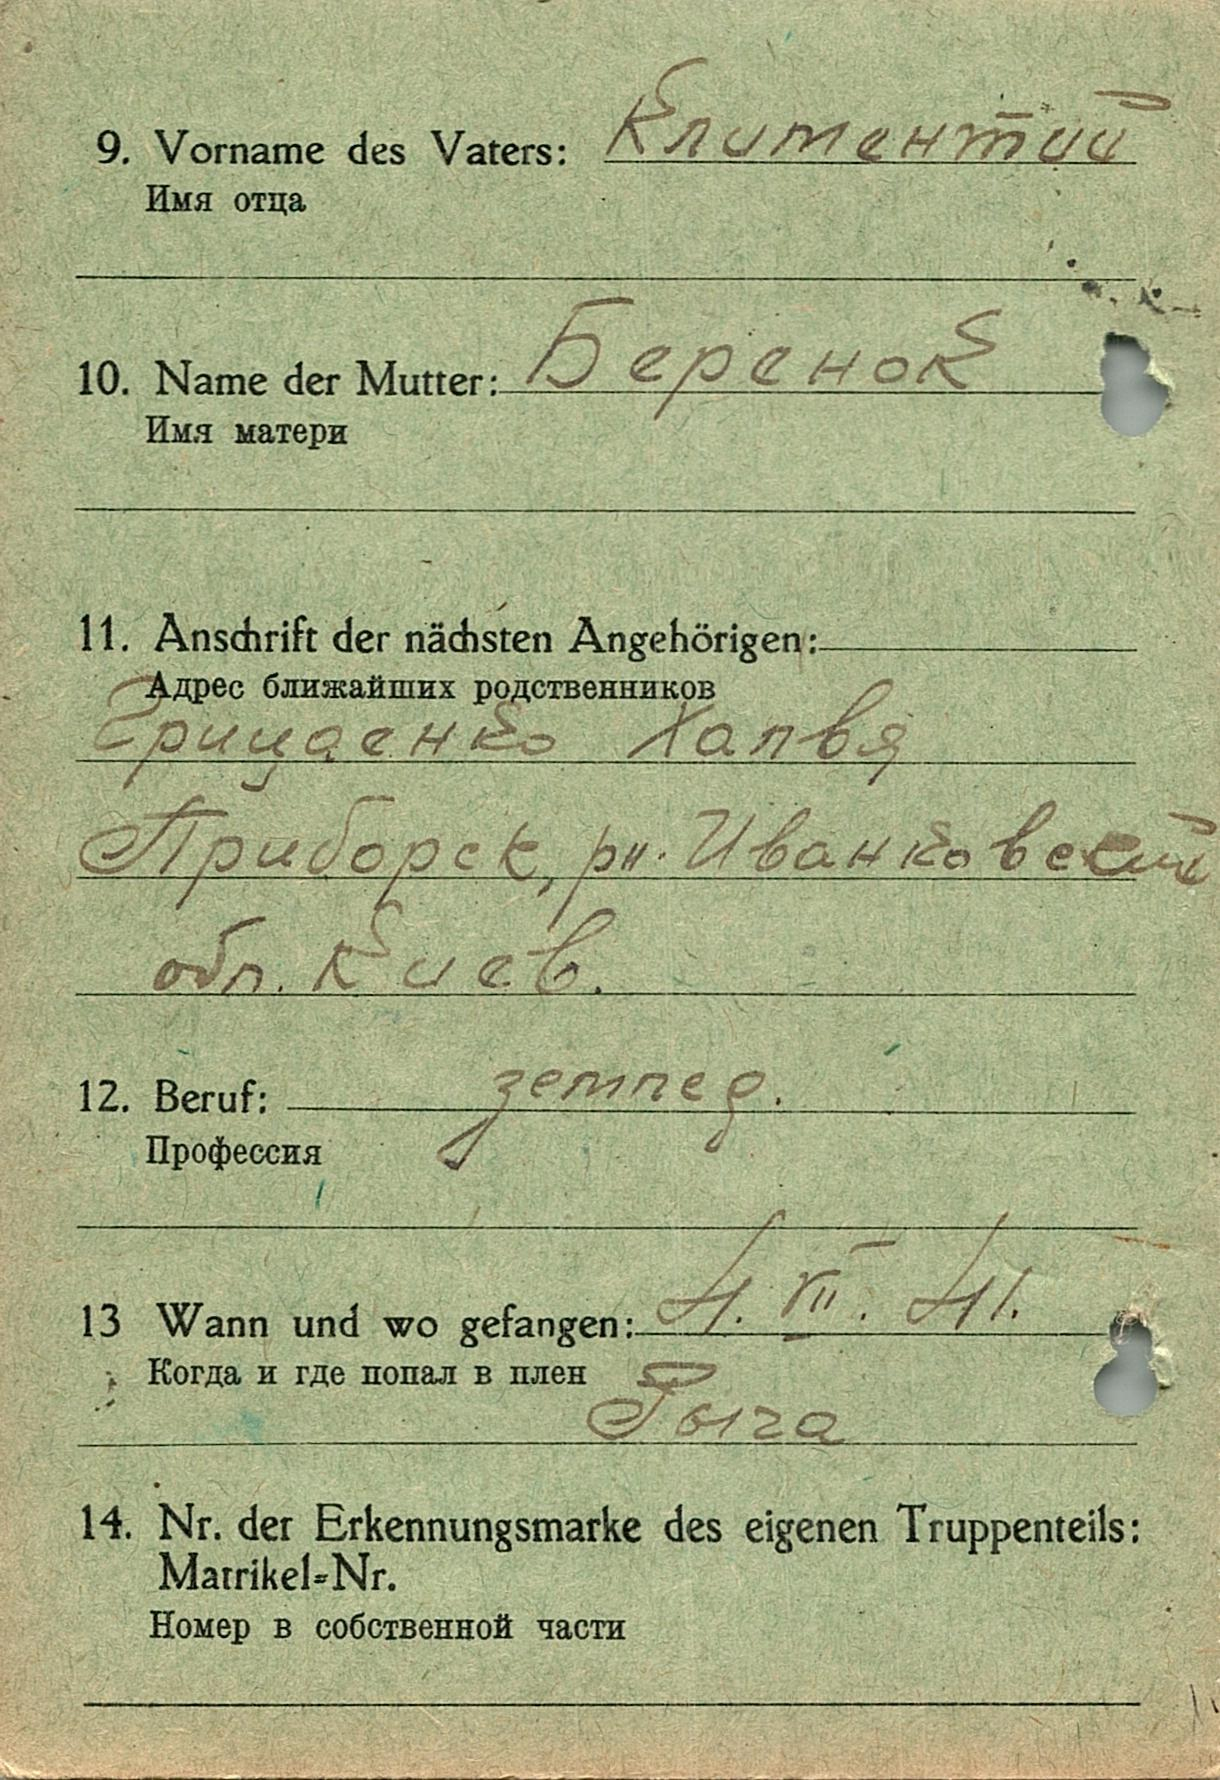 9. Vorname des Vaters: Климентий
Имя отца
10. Name der Mutter: Беренок
Имя матери
11. Anschrift der nächsten Angehörigen:
Адрес ближайших родственников
Грицаенко Хапвя
Приборск, рн. Иванковский
обл. Киев.
12. Beruf: землед.
Профессия
13 Wann und wo gefangen: 4. VII. 41.
Когда и где попал в плен
Рыга
14. Nr. der Erkennungsmarke des eigenen Truppenteils:
Matrikel=Nr.
Номер в собственной части